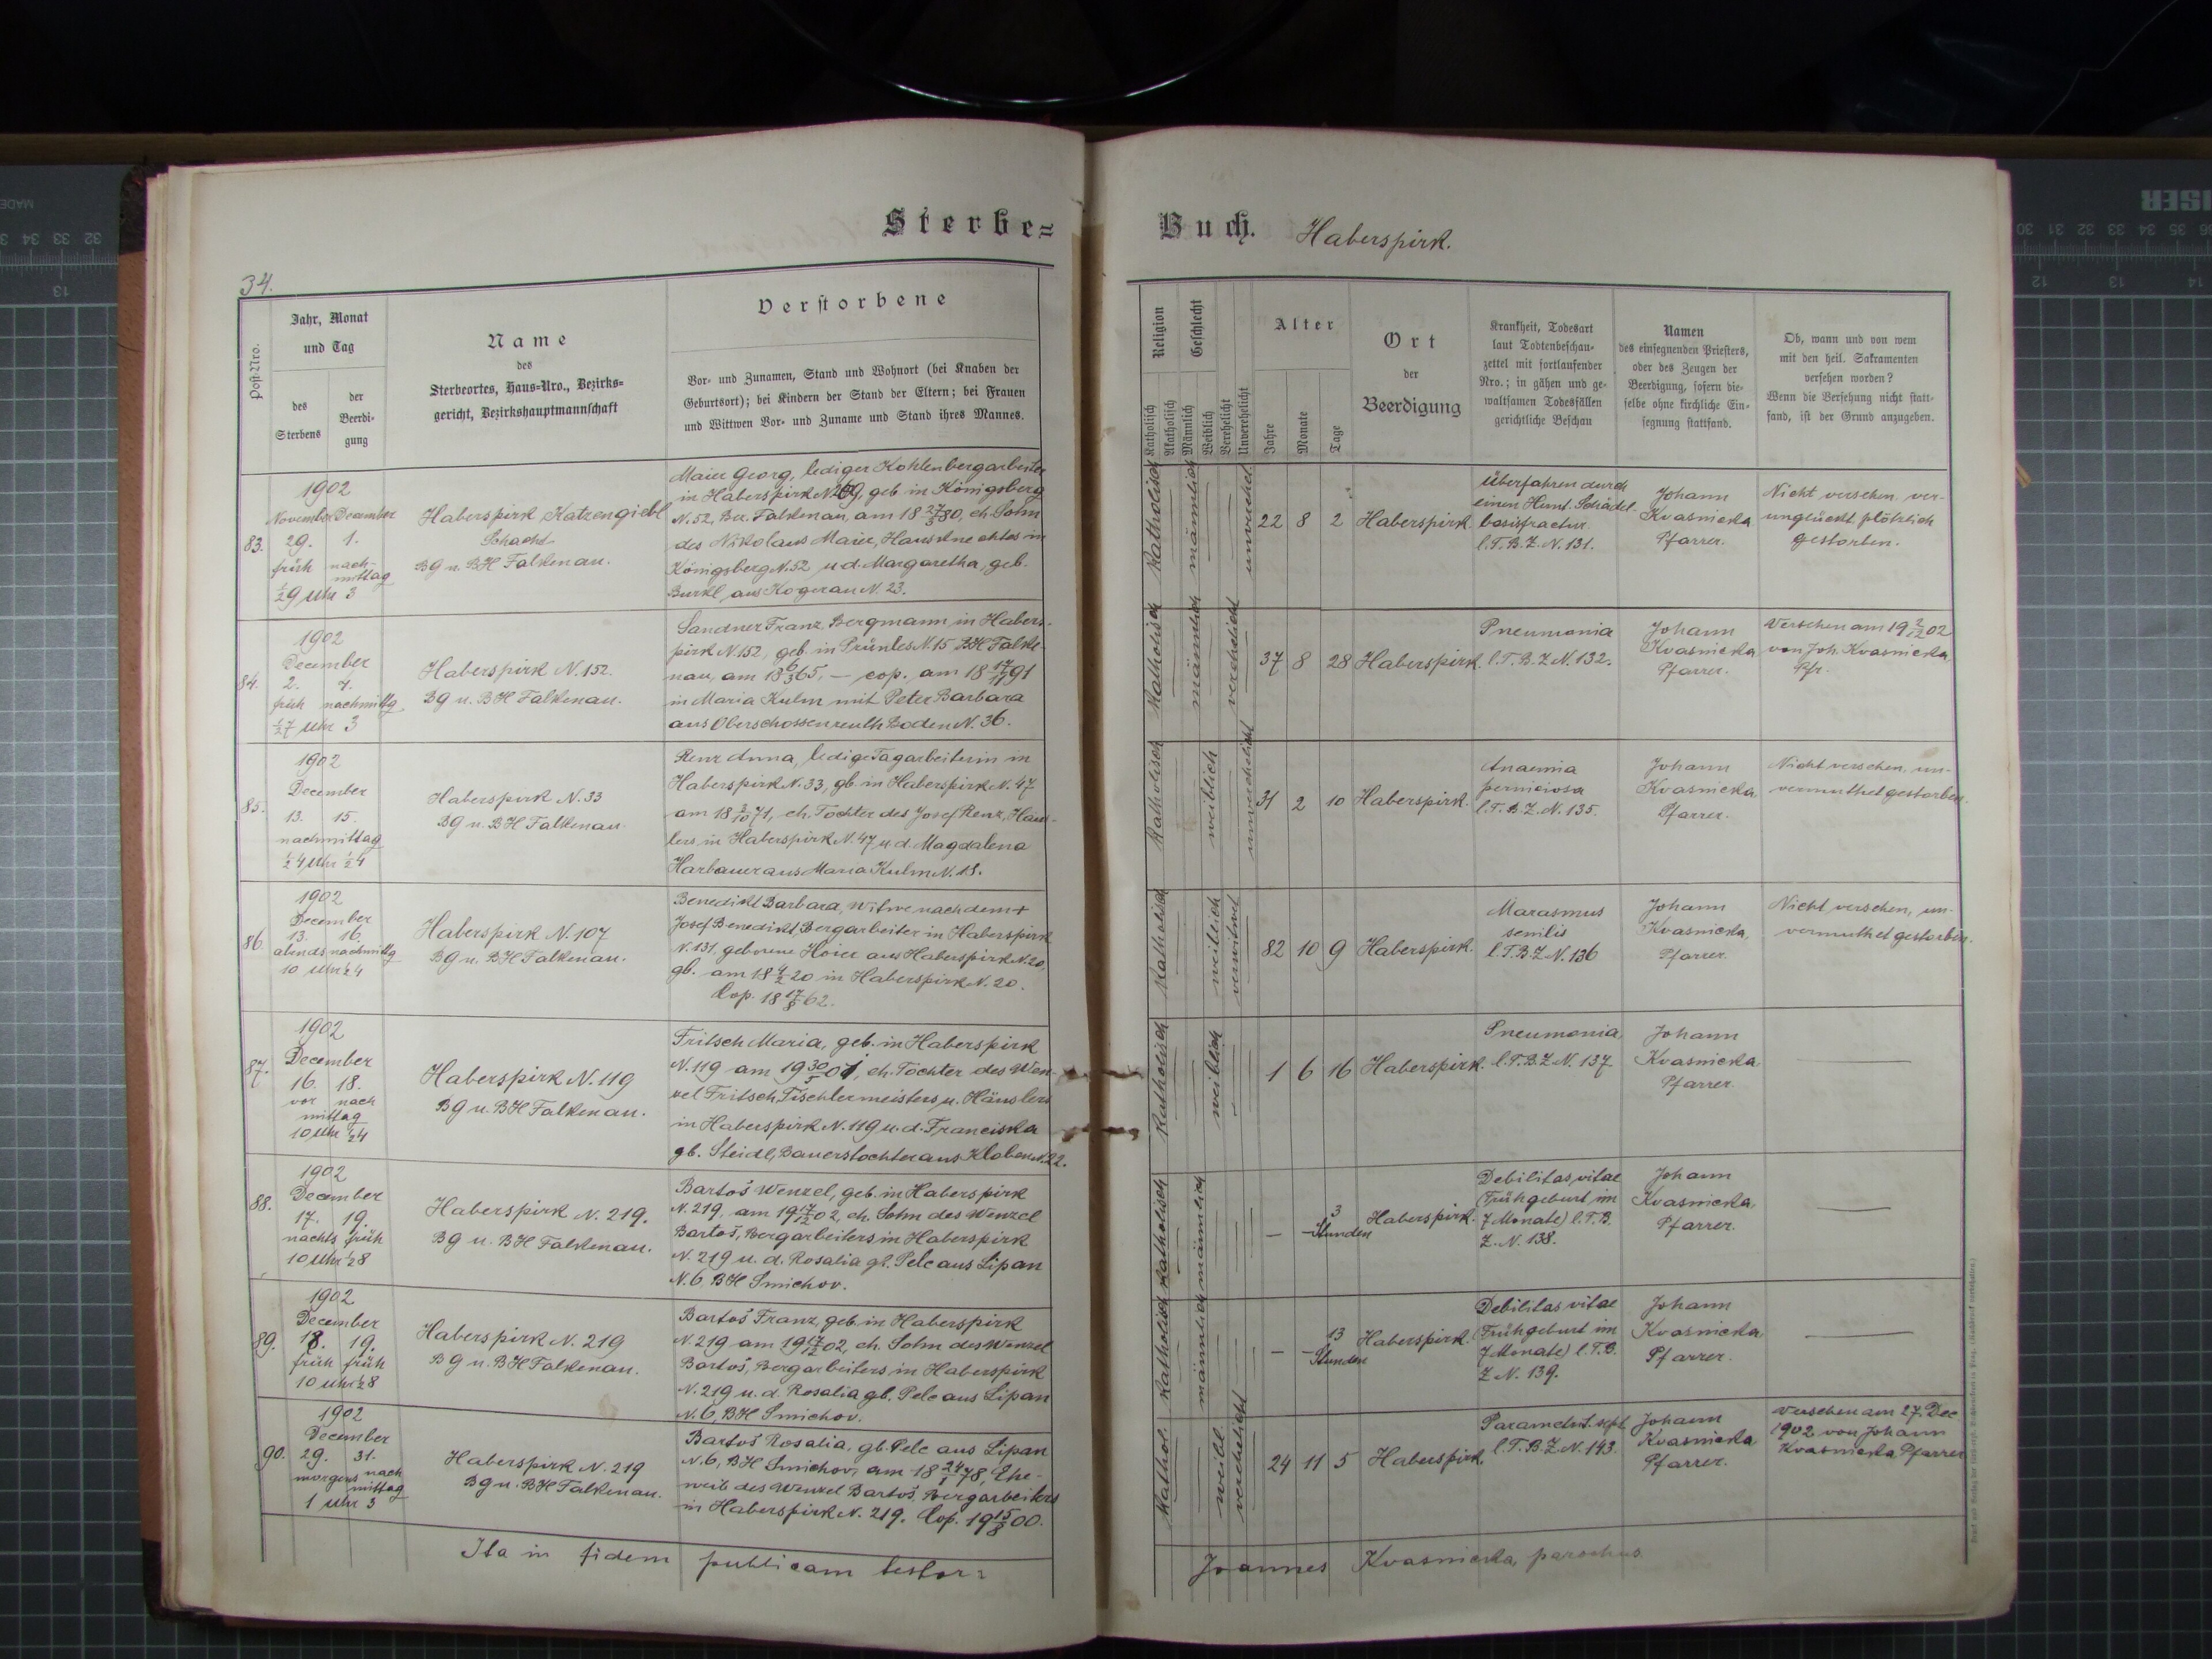 Sterbe=
Buch. Haberspirk.
34.
Post-Nro.
Jahr, Monat
und Tag
des
Sterbens
der
Beerdi-
gung
Name
des
Sterbeortes, Haus-Nro., Bezirks=
gericht, Bezirkshauptmannschaft
Verstorbene
Vor- und Zunamen, Stand und Wohnort (bei Knaben der
Geburtsort); bei Kindern der Stand der Eltern; bei Frauen
und Wittwen Vor- und Zuname und Stand ihres Mannes.
Religion
Katholisch
Akatholisch
Geschlecht
Männlich
Weiblich
Verehelicht
Unverehelicht
Alter
Jahre
Monate
Tage
Ort
der
Beerdigung
Krankheit, Todesart
laut Todtenbeschau-
zettel mit fortlaufender
Nro.; in gähen und ge-
waltsamen Todesfällen
gerichtliche Beschau
Namen
des einsegnenden Priesters,
oder des Zeugen der
Beerdigung, sofern die-
selbe ohne kirchliche Ein-
segnung stattfand.
Ob, wann und von wem
mit den heil. Sakramenten
versehen worden?
Wenn die Versehung nicht statt-
fand, ist der Grund anzugeben.
83.
1902
November December
29. 1.
früh nach-
mittag
½9 Uhr 3
Haberspirk Katzengiebl
Schacht
BG u. BH Falkenau.
Maier Georg, lediger Kohlenbergarbeiter
in Haberspirk N. geb in Königsberg
N. 52, Bez. Falkenau, am 18 27/3 80, eh. Sohn
des Nikolaus Maier, Hausknechtes in
Königsberg N. 52 u d. Margaretha, geb.
Burkl aus Kogerau N. 23.
Katholisch
männlich
unverehel.
22 8 2
Haberspirk.
Überfahren durch
einen Hunt. Schädel-
basisfractur
l. T. B. Z. N. 131.
Johann
Kvasnicka
Pfarrer.
Nicht versehen ver-
unglückt plötzlich
gestorben.
84.
1902
December
2. 4.
früh nachmittg
½7 Uhr 3
Haberspirk N. 152.
BG u. BH Falkenau.
Sandner Franz, Bergmann in Habers-
pirk N. 152, geb. in Prünles N. 15 BH Falke-
nau, am 18 6/3 65, – cop. am 18 17/11 91
in Maria Kulm mit Peter Barbara
aus Oberschossenreuth Boden N. 36.
Katholisch
männlich
verehelicht
37 8 28
Haberspirk.
Pneumonia
l. T. B. Z N. 132.
Johann
Kvasnicka
Pfarrer.
Versehen am 19 2/12 02
von Joh. Kvasnicka
Pfr.
85.
1902
December
13. 15.
nachmittag
½4 Uhr ½4
Haberspirk N. 33
BG u. BH Falkenau.
Renz Anna, ledige Tagarbeiterin in
Haberspirk N. 33, gb. in Haberspirk N. 47
am 18 3/10 71, eh. Tochter des Josef Renz, Häus-
lers in Haberspirk N. 47 u. d. Magdalena
Harbauer aus Maria Kulm N. 18.
Katholisch
weiblich
unverehelicht
31 2 10
Haberspirk.
Anaemia
perniciosa
l. T. B. Z. N. 135.
Johann
Kvasnicka
Pfarrer.
Nicht versehen, un-
vermuthet gestorben.
86.
1902
December
13. 16.
abends nachmittg
10 Uhr ½4
Haberspirk N. 107
BG u. BH Falkenau.
Benedikt Barbara, Witwe nach dem +
Josef Benedikt, Bergarbeiter in Haberspirk
N. 131, geborene Hoier aus Haberspirk N. 20,
gb. am 18 4/2 20 in Haberspirk N. 20.
Cop. 18 17/8 62.
Katholisch
weiblich
verwitwet
82 10 9
Haberspirk.
Marasmus
senilis
l. T. B. Z. N. 136
Johann
Kvasnicka,
Pfarrer.
Nicht versehen, un-
vermuthet gestorben.
87.
1902
December
16. 18.
vor nach
mittag
10 Uhr ½4
Haberspirk N. 119
BG u. BH Falkenau.
Fritsch Maria, geb. in Haberspirk
N. 119 am 19 30/5 01, eh. Tochter des Wen-
zel Fritsch, Tischlermeisters u. Häuslers
in Haberspirk N. 119 u. d. Franciska
gb. Steidl, Bauerstochter aus Kloben N. 22.
Katholisch
weiblich
1 6 16
Haberspirk.
Pneumonia,
l. T. B. Z N. 137
Johann
Kvasnicka
Pfarrer.
88.
1902
December
17. 19.
nachts früh
10 Uhr ½8
Haberspirk N. 219.
BG u. BH Falkenau.
Bartoš Wenzel, geb. in Haberspirk
N. 219, am 19 17/12 02, eh. Sohn des Wenzel
Bartoš, Bergarbeiters in Haberspirk
N. 219 u. d. Rosalia gb. Pelc aus Lipan
N. 6 BH Smichov.
Katholisch
männlich
– – 3
Stunden
Haberspirk.
Debilitas vitae
(Frühgeburt im
7 Monate) l. T. B.
Z. N. 138.
Johann
Kvasnicka,
Pfarrer.
89.
1902
December
18. 19.
früh früh
10 Uhr ½8
Haberspirk N. 219
BG u. BH Falkenau.
Bartoš Franz, geb. in Haberspirk
N. 219 am 19 17/12 02, eh. Sohn des Wenzel
Bartoš, Bergarbeiters in Haberspirk
N. 219 u. d. Rosalia gb. Pelc aus Lipan
N. 6, BH Smichov.
Katholisch
männlich
– – 13
Stunden
Haberspirk.
Debilitas vitae
(Frühgeburt im
7 Monate) l. T. B.
Z N. 139.
Johann
Kvasnicka,
Pfarrer.
90.
1902
December
29. 31.
morgens nach
mittag
1 Uhr 3
Haberspirk N. 219
BG u. BH Falkenau.
Bartoš Rosalia, gb. Pelc aus Lipan
N. 6, BH Smichov, am 18 24/1 78, Ehe-
weib des Wenzel Bartoš, Bergarbeiters
in Haberspirk N. 219. Cop. 19 15/8 00.
Kathol.
weibl.
verehelicht
24 11 5
Haberspirk.
l. T. B. Z. N. 143.
Johann
Kvasnicka
Pfarrer.
Versehen am 27. Dec
1902 von Johann
Kvasnicka, Pfarrer
Ita in fidem publicam testor:
Joannes Kvasnicka, parochus